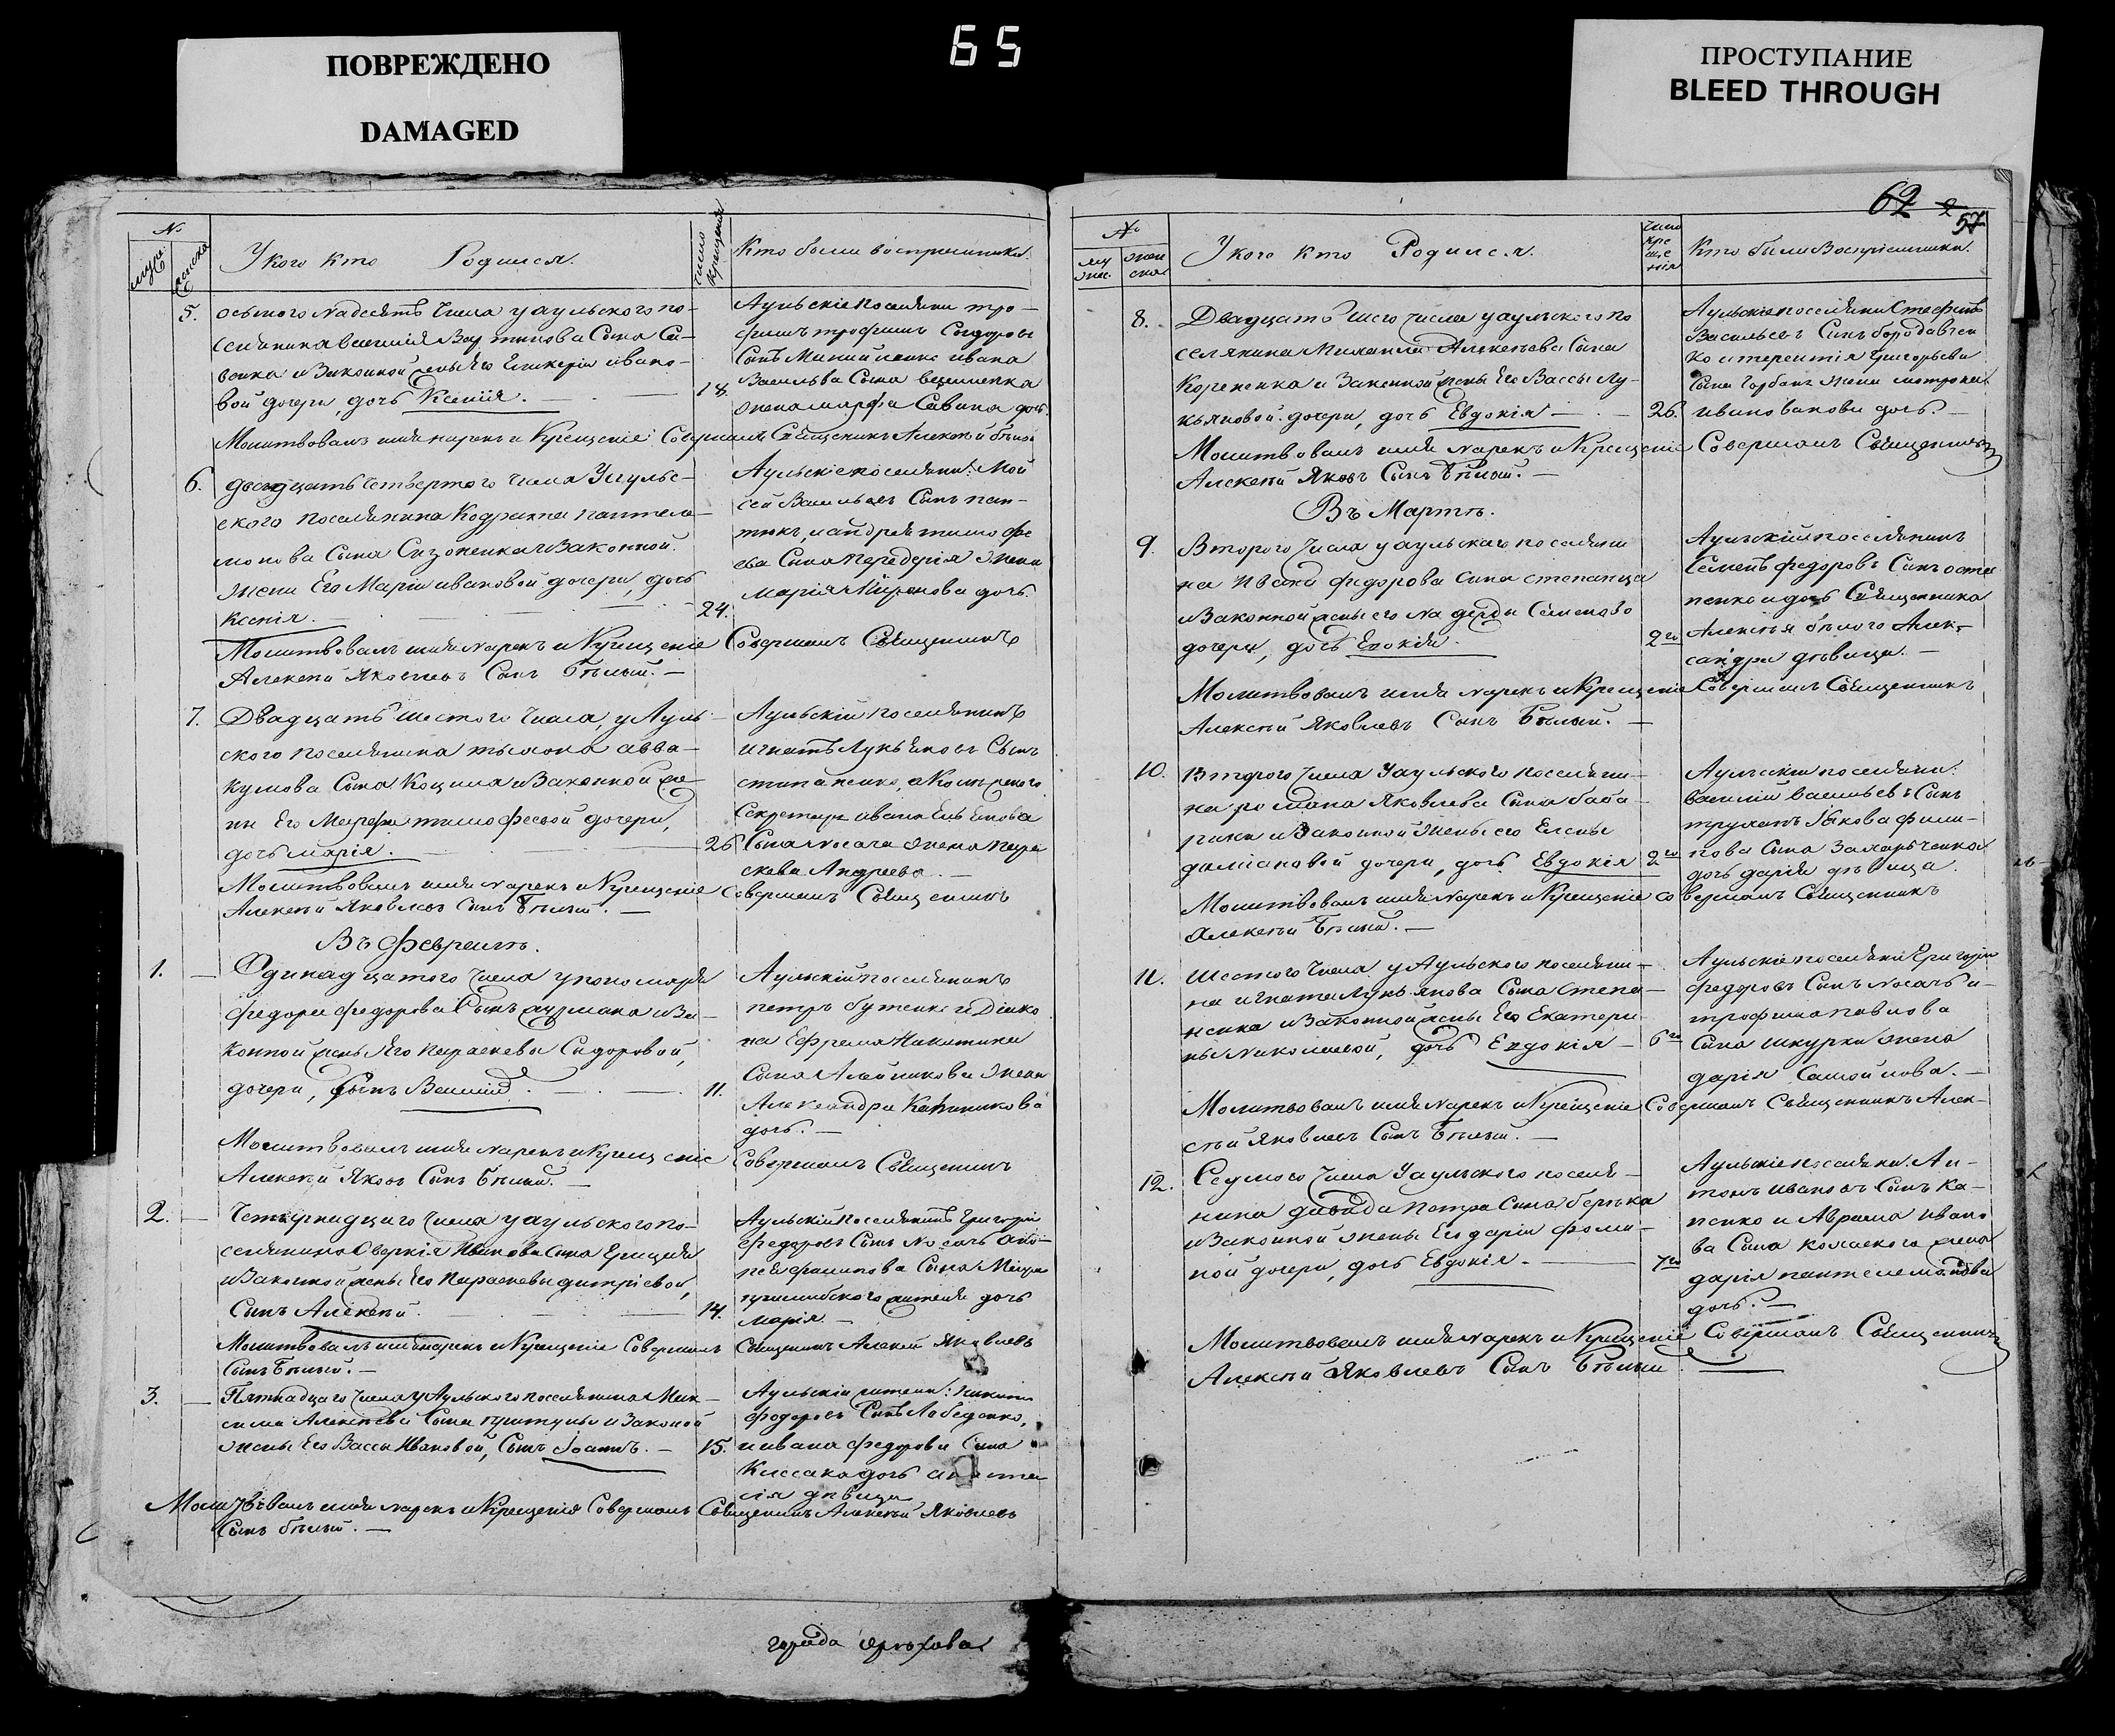 ПОВРЕЖДЕНО
DAMAGED
65
ПРОСТУПАНИЕ
BLEED THROUGH
62
57
№
муж:
женска
У кого кто Родился.
число крещения
Кто были воспреемники
5.
осьмого надесять числа у аульского по-
селянина Василия сына Са-
венка и законной жены его Гликерии ивано-
вой дочери, дочь Ксенія.
18.
Аульскіе поселяни тро-
фимъ трофимъ Сидоровъ
Сынъ ивана
Васильева Сына
жена марфа Савина дочь.
Молитвовалъ имя нарекъ и Крещеніе Совершалъ Священникъ Алексѣй бѣлый
6.
двадцать четвертого числа У аульс-
ского поселянина Кодрата пантеле-
монова Сына Сизоненка и Законной
жены Его Маріи ивановой дочери, дочь
Ксенія.
24.
Аульскіе поселяни: Мой
сей Васильевъ Сынъ пан-
тюхъ, и андрея тимофе
ева Сына передерія жена
марія Миронова дочь.
Молитвовалъ имя Нарекъ и Крещеніе Совершалъ Священникъ
Алексѣй Яковлевъ Сынъ Бѣлый.
7.
Двадцать шестого числа, у Ауль-
ского поселянина авва-
кумова Сына Коцила и Законной же
ны Его Марфы тимофеевой дочери,
дочь марія.
26
Аульскій поселянинъ
игнатъ Лукьяновъ Сынъ
степаненко, и
Секретаря ивана
Сына носача жена пара
скева Андреева.
Молитвовалъ имя Нарекъ и Крещеніе Совершалъ Священникъ
Алексѣй Яковлевъ Сынъ Бѣлый.
Въ февралѣ.
1.
Одинадцатого числа у пономаря
федора федорова Сынъ и За-
конной жены Его параскевы Сидоровой
дочери, Сынъ Василій.
11.
Аульскій поселянинъ
петръ бутенко и Діяко
на Ефрема Никитина
Сына Алейникова жена
Александра
дочь.
Молитвовалъ имя нарекъ и Крещеніе Совершалъ Священникъ
Алексѣй Яковъ Сынъ Бѣлый.
2.
Четырнадцаго числа у аульского по-
селянина Аверкія Иванова Сына Грицая
и Законной жены Его параскевы дмтріевой,
Сынъ Алексѣй.
14.
Аульскій поселянинъ Григорій
федоровъ Сынъ Носачъ
филипова Сына
жителя дочь
марія.
Молитвовалъ имя нарекъ и Крещеніе Совершалъ Священникъ Алексѣй Яковлевъ
Сынъ Бѣлый.
3.
Пятнадцаго числа у Аульского поселянина Мак-
сима Алексѣева Сына и Законой
жены Его Вассы Ивановой, Сынъ Іоаннъ.
15.
Аульскіи жители: никита
федоровъ Сынъ Лебеденко,
и ивана федорова Сына
Киссака дочь
сія дѣвица
Молитвовалъ имя нарекъ и Крещенія Совершалъ Священникъ Алексѣй Яковлевъ
Сынъ бѣлый.
города орѣхова
№
му
жес.
жен
ска
У кого кто Родился.
число
кре
ще
нія
Кто были Воспріемники.
8.
Двадцать шесго числа у аульского по
селянина Михаила Алексѣева Сына
Корененка и Законной жены Его Вассы Лу-
кьяновой дочери, дочь Евдокія
26.
Аульскіе поселяни Стефанъ
Васильевъ Сынъ бородавчен
ко и терентія Григорьева
Сына Горбань жена мотрона
иванова дочь.
Молитвовалъ имя Нарекъ и Крещеніе Совершалъ Священникъ
Алексѣй Яковъ Сынъ Бѣлый.
Въ Мартѣ.
9.
Второго числа у аульскаго поселяни
на Ивана федорова сына степанца
и Законной жены его Надежды Семеново
дочери, дочь
2го
Аульскій поселянинъ
Семенъ федоровъ Сынъ оста
пенко и дочь Священника
Алексѣя бѣлого Алек-
сандра дѣвица.
Молитвовалъ имя нарекъ и Крещеніе Совершалъ Священникъ
Алексѣй Яковлевъ Сынъ Бѣлый.
10.
Второго числа У аульского поселяни-
на романа Яковлева Сына баба-
рики и Законной жены его Елены
даміановой дочери, дочь Евдокія
2го
Аульскіи поселяни:
василій васильевъ Сынъ
труханъ Якова фили-
пова Сына Захарченка
дочь дарія дѣвица.
Молитвовалъ имя нарекъ и Крещеніе совершалъ Священникъ
Алексѣй Бѣлый.
11.
Шестого числа у Аульского поселяни-
на игната Лукьянова Сына Степа-
ненка и Законной жены Его Екатери
ны Николаевой, дочь Евдокія
6го
Аульскіе поселяни Григорій
федоровъ Сынъ Носачъ и
трофима павлова
Сына шкурки жена
дарія Самойлова.
Молитвовалъ имя Нарекъ и Крещеніе Совершалъ Священникъ Алек-
сѣй Яковлевъ Сынъ Бѣлый.
12.
Седмого числа У аульского поселя-
нина давида петра Сына
и Законной жены Его даріи фоми-
ной дочери, дочь Евдокія.
7го
Аульскіе поселяни: Ан-
тонъ ивановъ Сынъ Ка-
пенко и Аврама ивано
ва Сына жена
дарія пантелемонова
дочь.
Молитвовалъ имя нарекъ и Крещеніе Совершалъ Священникъ
Алексѣй Яковлевъ Сынъ Бѣлый